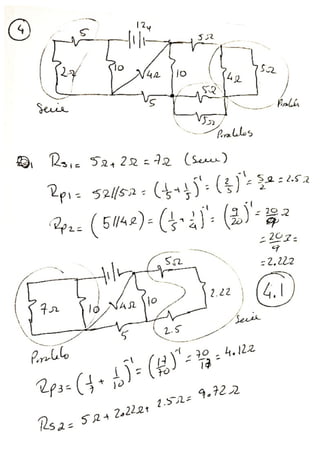 4
5
12v
5Ω
2Ω
10
4Ω
10
4Ω
5Ω
5
5Ω
5Ω
Serie
Paralelo
Paralelos
Rs1= 5Ω+2Ω = 7Ω (Serie)
Rp1= 5Ω//5Ω = (1/5+1/5)^-1 = (2/5)^-1 = 5/2 Ω = 2.5Ω
Rp2= (5//4Ω) = (1/5+1/4)^-1 = (9/20)^-1 = 20/9 Ω
= 20/9 Ω =
= 2.222
5Ω
7Ω
10
4Ω
10
2.22
4.1
5
2.5
Serie
Paralelo
Rp3= (1/7 + 1/10)^-1 = (17/70)^-1 = 70/17 = 4.12Ω
Rs2= 5Ω+2.22Ω+2.5Ω= 9.72Ω